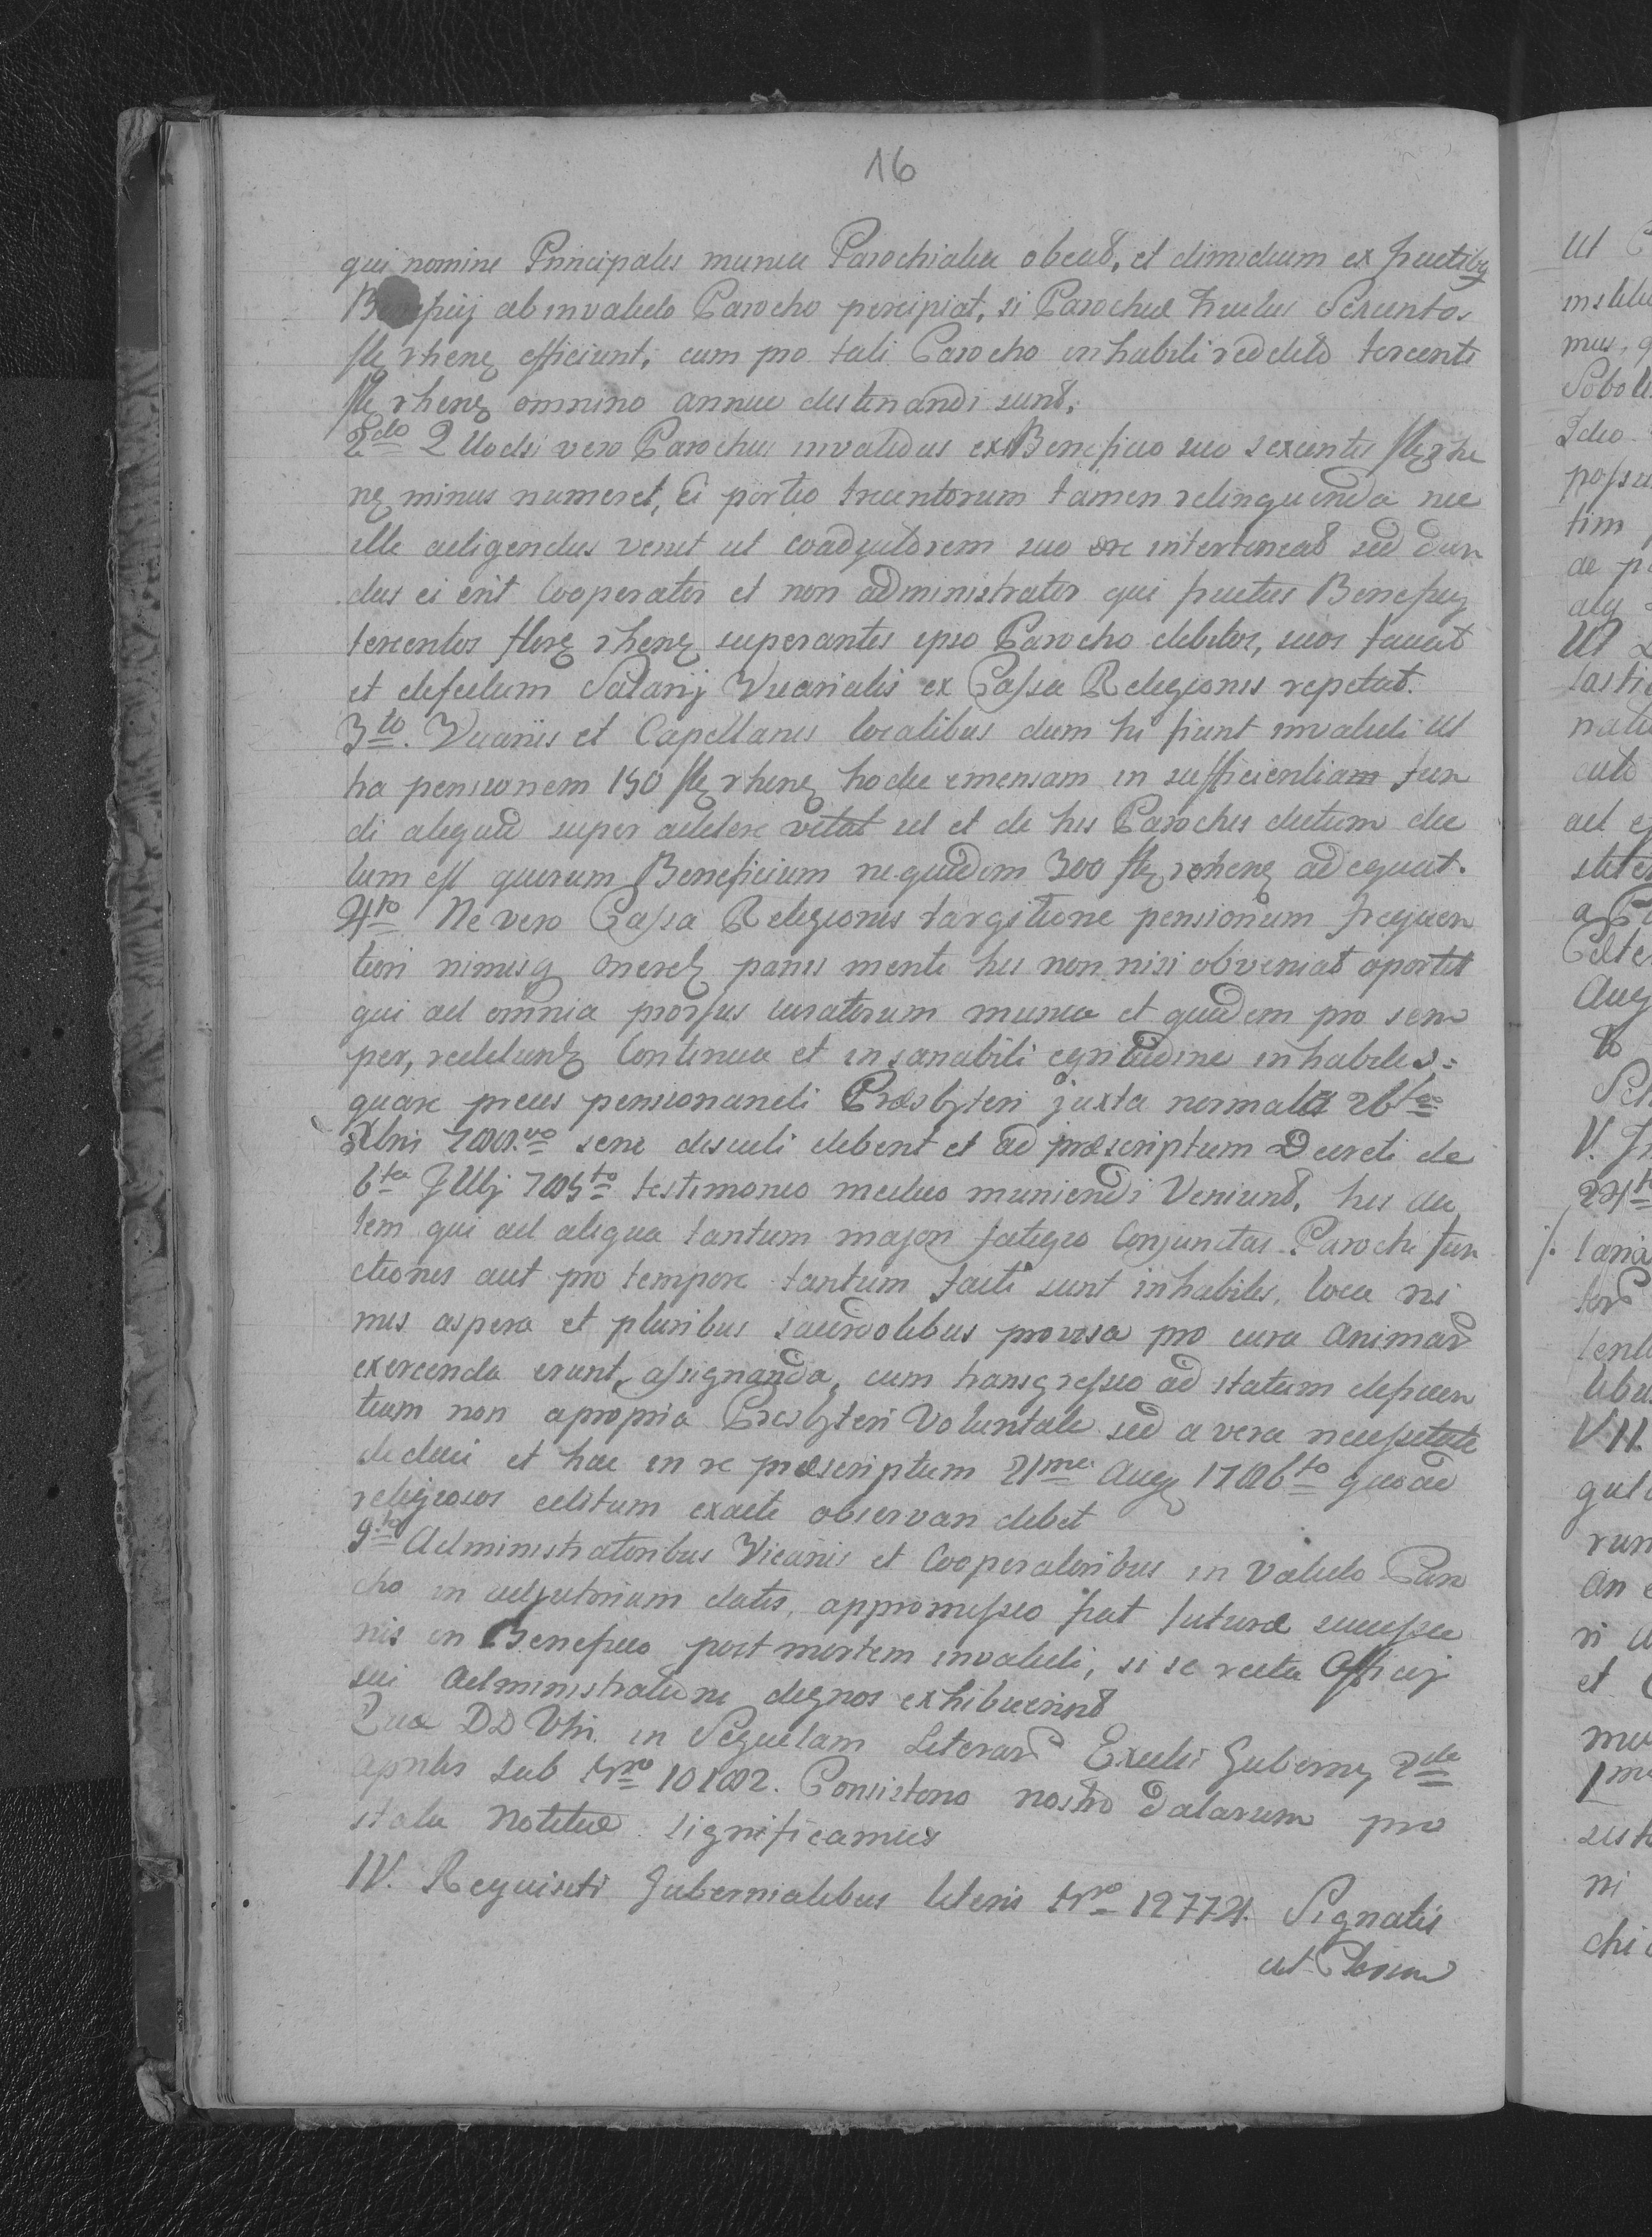 16
qui nomine Principalis munia Parochialia obeat, et dimidium ex fructiby
Beneficij ab invalido Parocho percipiat, si Parochiæ Fructus Sexcentos
flr rhenz efficiunt, cum pro tali Parocho inhabili reddito tercenti
flr rhenz omnino annue destinandi sunt,
2do Quodsi vero Parochus invalidus ex Beneficio suo sexcentis flr rhe
nz minus numeret, Ei portio trecentorum tamen relinquenda nec
ille adigendus venit ut coadjutorem suo ære interteneat sed dan
dus ei erit Cooperator et non administrator qui fructus Beneficij
tercentos flore rhenz superantes ipso Parocho debitos, suos faciat
et defectum Salarij Vicarialis ex Cassa Religionis repetat.
3to. Vicariis et Capellanis localibus dum hi fiunt invalidi Ul
tra pensionem 150 flr rhenz hodie emensam in sufficientiam fun
di aliquid super addere vetat ut et de his Parochis dictum dic
tum est quorum Beneficium nequidem 300 flr rhenz adequat.
4to Ne vero Cassa Religionis largitione pensionum frequen
tiori nimisq oneretz panis mente his non nisi obveniat oportet
qui ad omnia prorsus curatorum munia et quidem pro sem
per, redduntz Continua et insanabili egritudine inhabiles:
quare preces pensionandi Præsbyteri juxta normales 26ta
Xbris 788.vo sene discuti debent et ad præscriptum Decreti de
6ta Jullj 785to testimonio medico muniendi Veniunt, his au
tem qui ad aliqua tantum majori fatigio Conjunctas Parochi fun
ctiones aut pro tempore tantum facti sunt inhabiles, loca mi
nus aspera et pluribus sacerdotibus provisa pro cura animar
exercenda erunt assignanda, cum transgressio ad statum deficien
tium non a propria Præsbyteri Voluntate sed a vera necessitate
deduci et hac in re præscriptum 21ma Augi 1786to quoad
religiosos editum exacte observari debet
5to Administratoribus Vicariis et Cooperatoribus in valido Paro
cho in adjutorium datis, appromissio fiat futuræ successio
nis in Beneficio post mortem invalidi, si se recta Officij
sui Administratione dignos exhibuerint
Quæ DD Vhi. in Sequelam Literar Excelsi Gubernij 2da
aprilis sub Nro 10182. Consistorio nostro Datarum pro
statu Notitiæ significamus
IV. Requisiti Gubernialibus literis Nro 12774. Signatis
ut Person